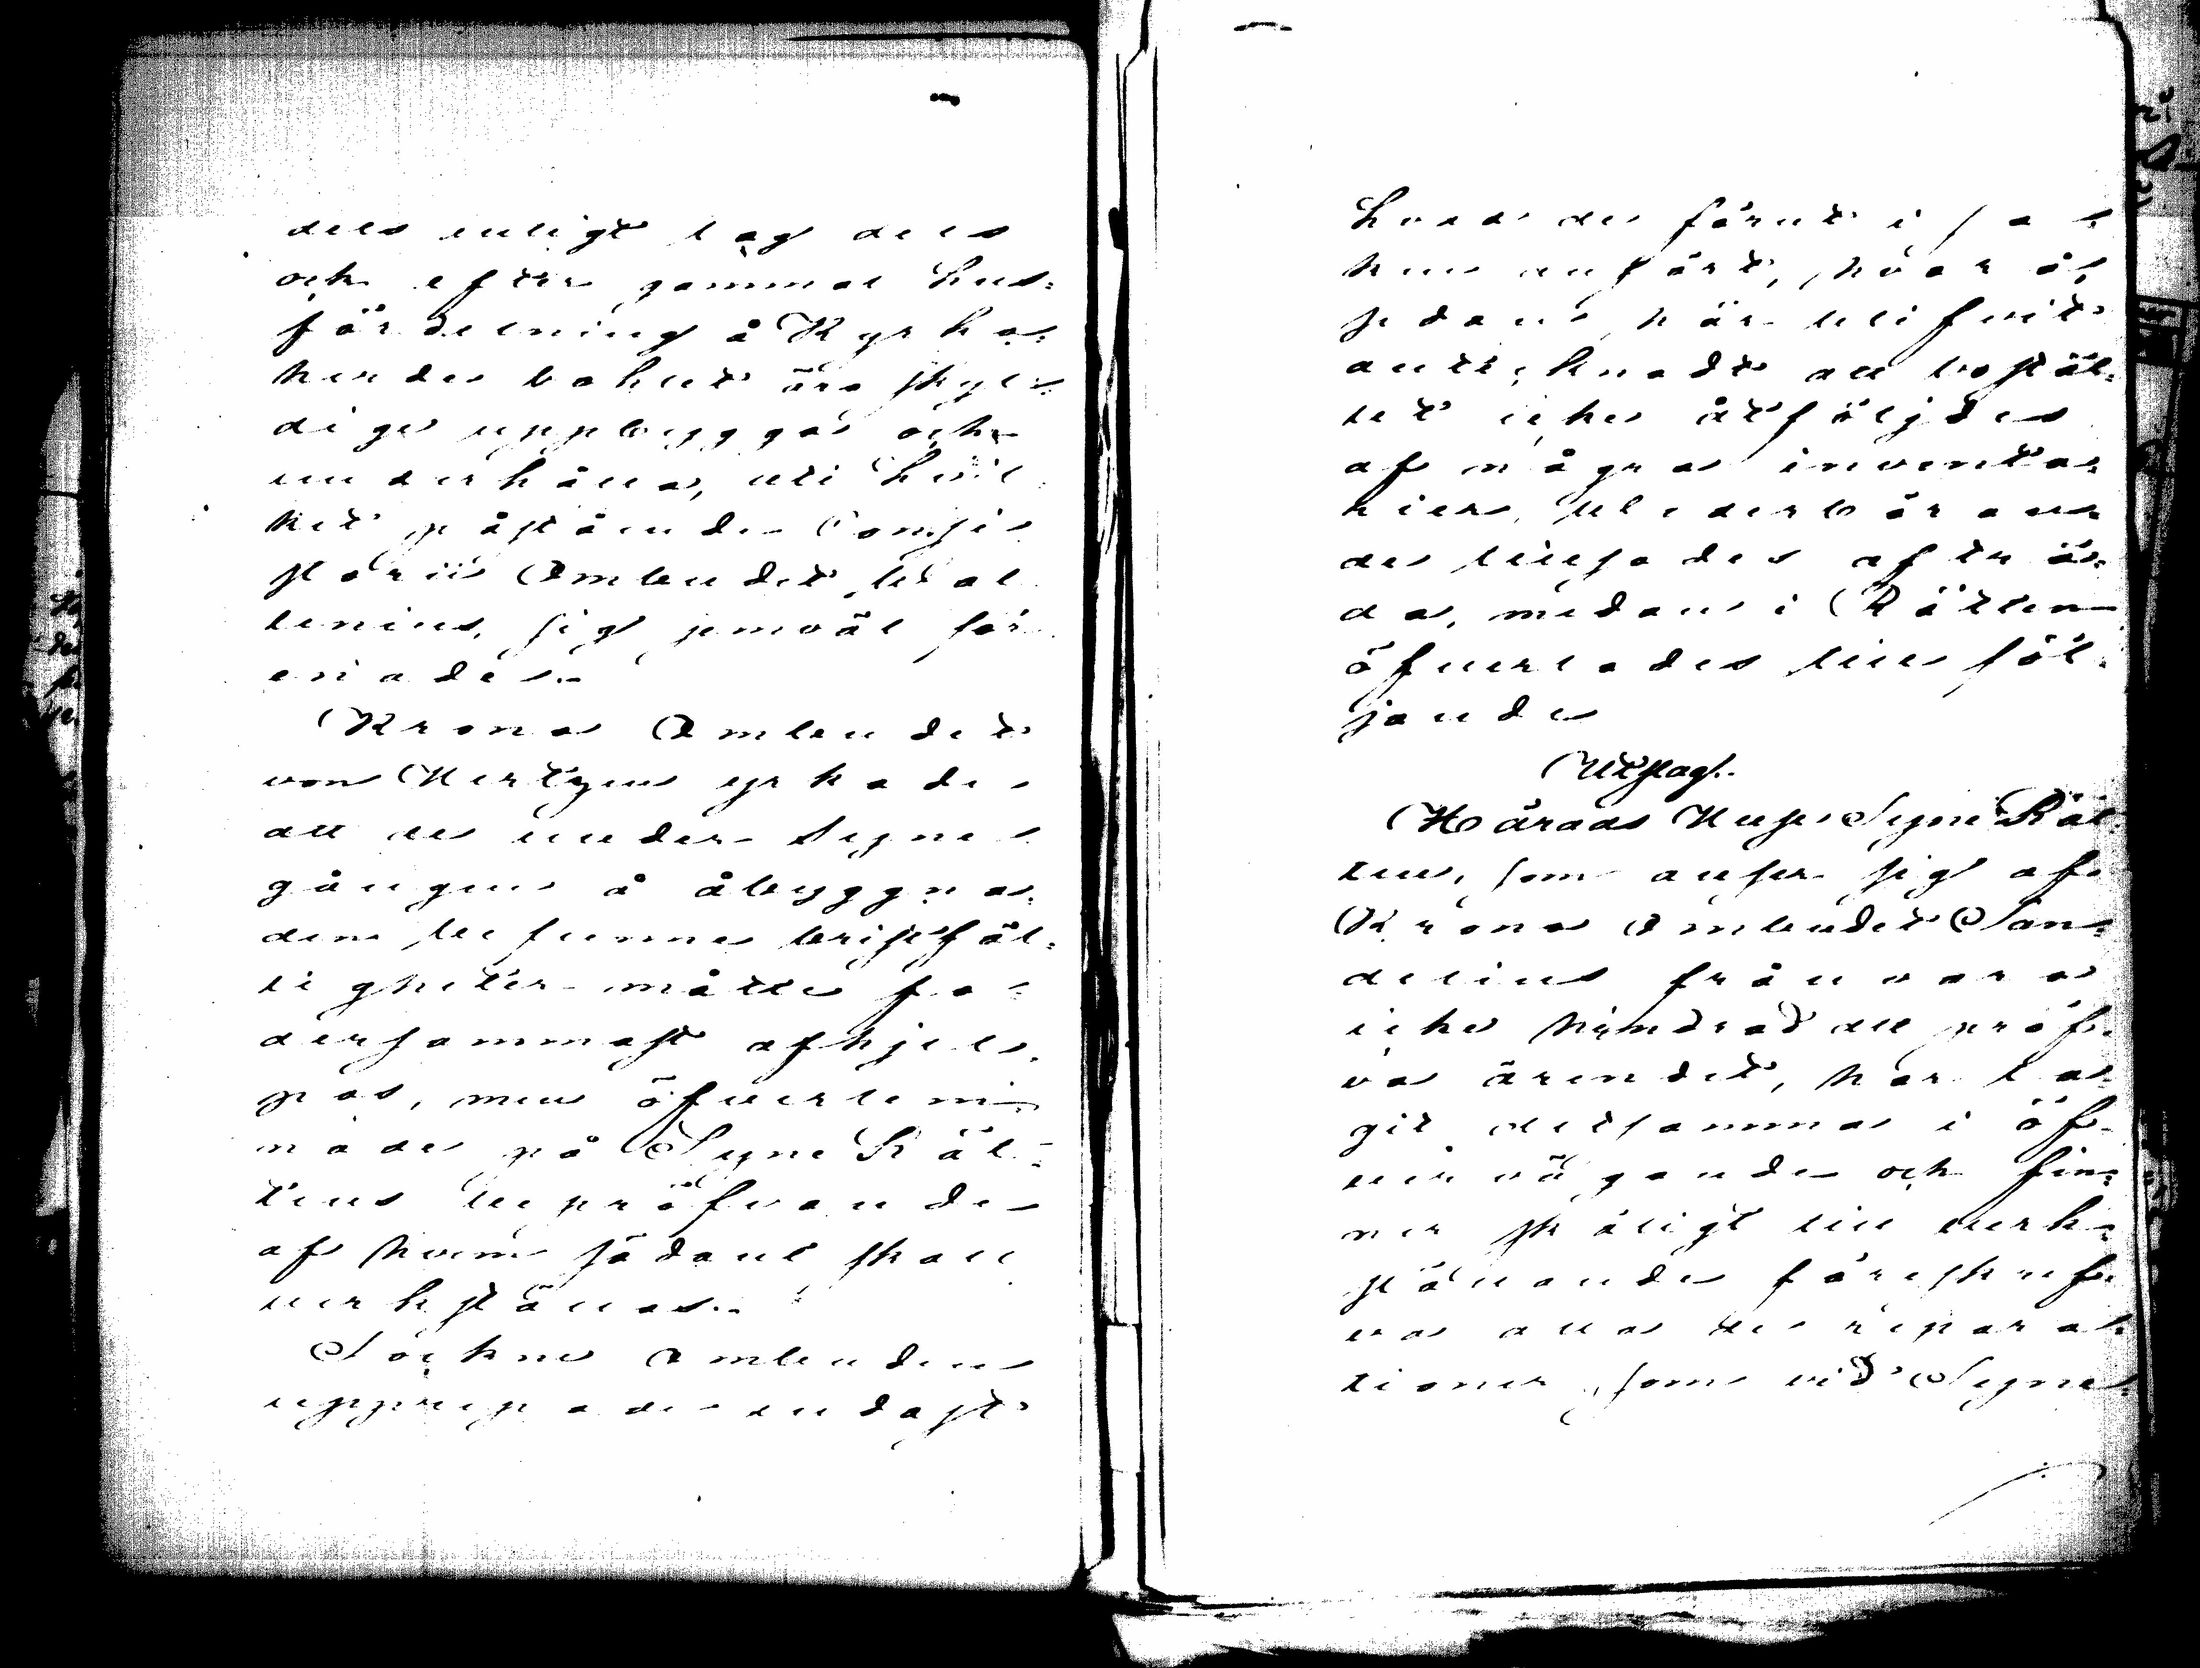 dels enligt lag dels
och efter gammal hus-
fördelning å Kyrko-
herde bohlet äro skyl-
dige uppbyggas och
underhållas, uti hvil-
ket påstående Consi-
storii Ombudet Wal-
lenius, sig jemväl för-
enade.
Krono Ombudet
von Mertzen yrkade
att de under Syne
gången å åbyggna-
den befunne bristfäl-
ligheter måtte fo-
dersammast afhjel-
pas, men öfverlem-
nade på Syne Rät-
tens bepröfvande
af hvem sådant skall
verkställas.
Sockne Ombuden
upprepade endast
hvad de förut i sa-
ken anfört, hvar å
sedan här blifvit
antecknadt att bostäl-
let icke åtföljdes
af några invента-
rier, vederböran-
de tillsades afträ-
da, medan i Rätten
öfverlades till föl-
jande
Utslag.
Härads Husesyne Rät-
ten, som anser sig af
Krono Ombudet San-
delins frånvaro
icke hindrad att pröf-
va ärendet, har ta-
git detsamma i öf-
vervägande och fin-
ner skäligt till verk-
ställande föreskrif-
va alla de repara-
tioner, som vid Syne